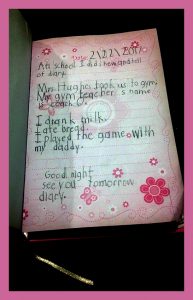 2/22/2017
At school I did
of diary.
Mrs. Hughe took us to gym.
Mr. gym teacher's name
is coach
I drank milk.
I ate bread.
I played the game with
my daddy.
Good night
see you tomorrow
diary.